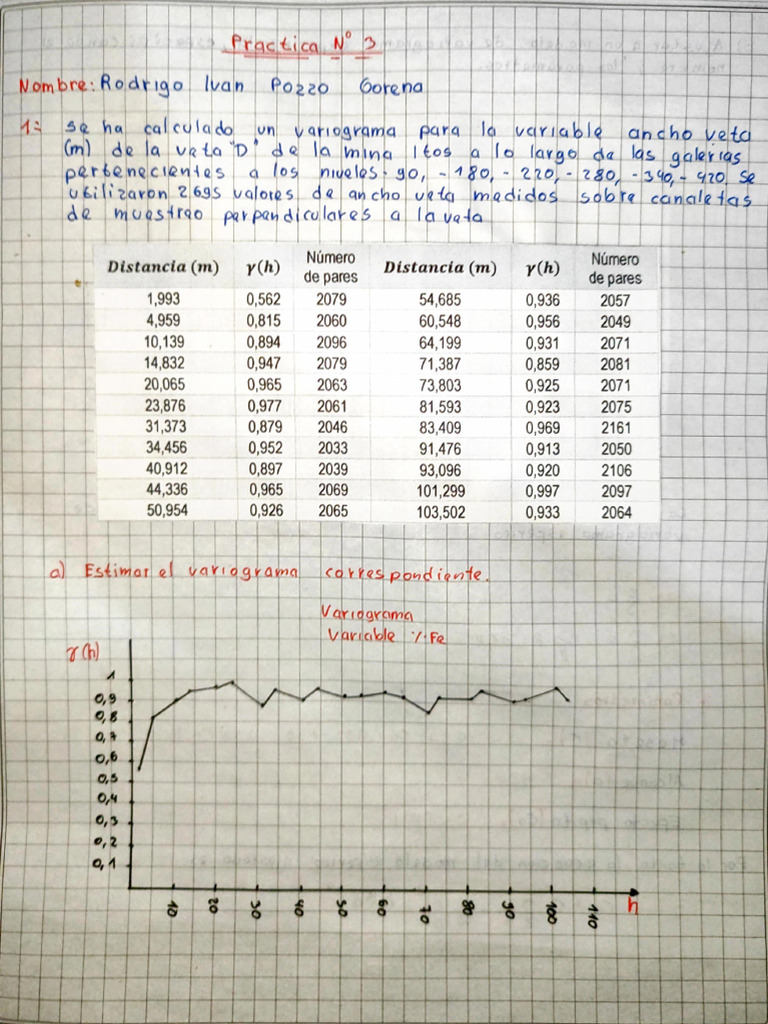 Practica N° 3
Nombre: Rodrigo Ivan Pozzo Gorena
1= se ha calculado un variograma para la variable ancho veta
(m) de la veta "D" de la mina Itos a lo largo de las galerias
pertenecientes a los niveles - 90, - 180, - 220, - 280, - 340, - 420. Se
utilizaron 2695 valores de ancho veta medidos sobre canaletas
de muestreo perpendiculares a la veta
Distancia (m) γ(h) Número de pares Distancia (m) γ(h) Número de pares
1,993 0,562 2079 54,685 0,936 2057
4,959 0,815 2060 60,548 0,956 2049
10,139 0,894 2096 64,199 0,931 2071
14,832 0,947 2079 71,387 0,859 2081
20,065 0,965 2063 73,803 0,925 2071
23,876 0,977 2061 81,593 0,923 2075
31,373 0,879 2046 83,409 0,969 2161
34,456 0,952 2033 91,476 0,913 2050
40,912 0,897 2039 93,096 0,920 2106
44,336 0,965 2069 101,299 0,997 2097
50,954 0,926 2065 103,502 0,933 2064
a) Estimar el variograma correspondiente.
Variograma
Variable %Fe
γ(h)
1
0,9
0,8
0,7
0,6
0,5
0,4
0,3
0,2
0,1
10 20 30 40 50 60 70 80 90 100 110 h